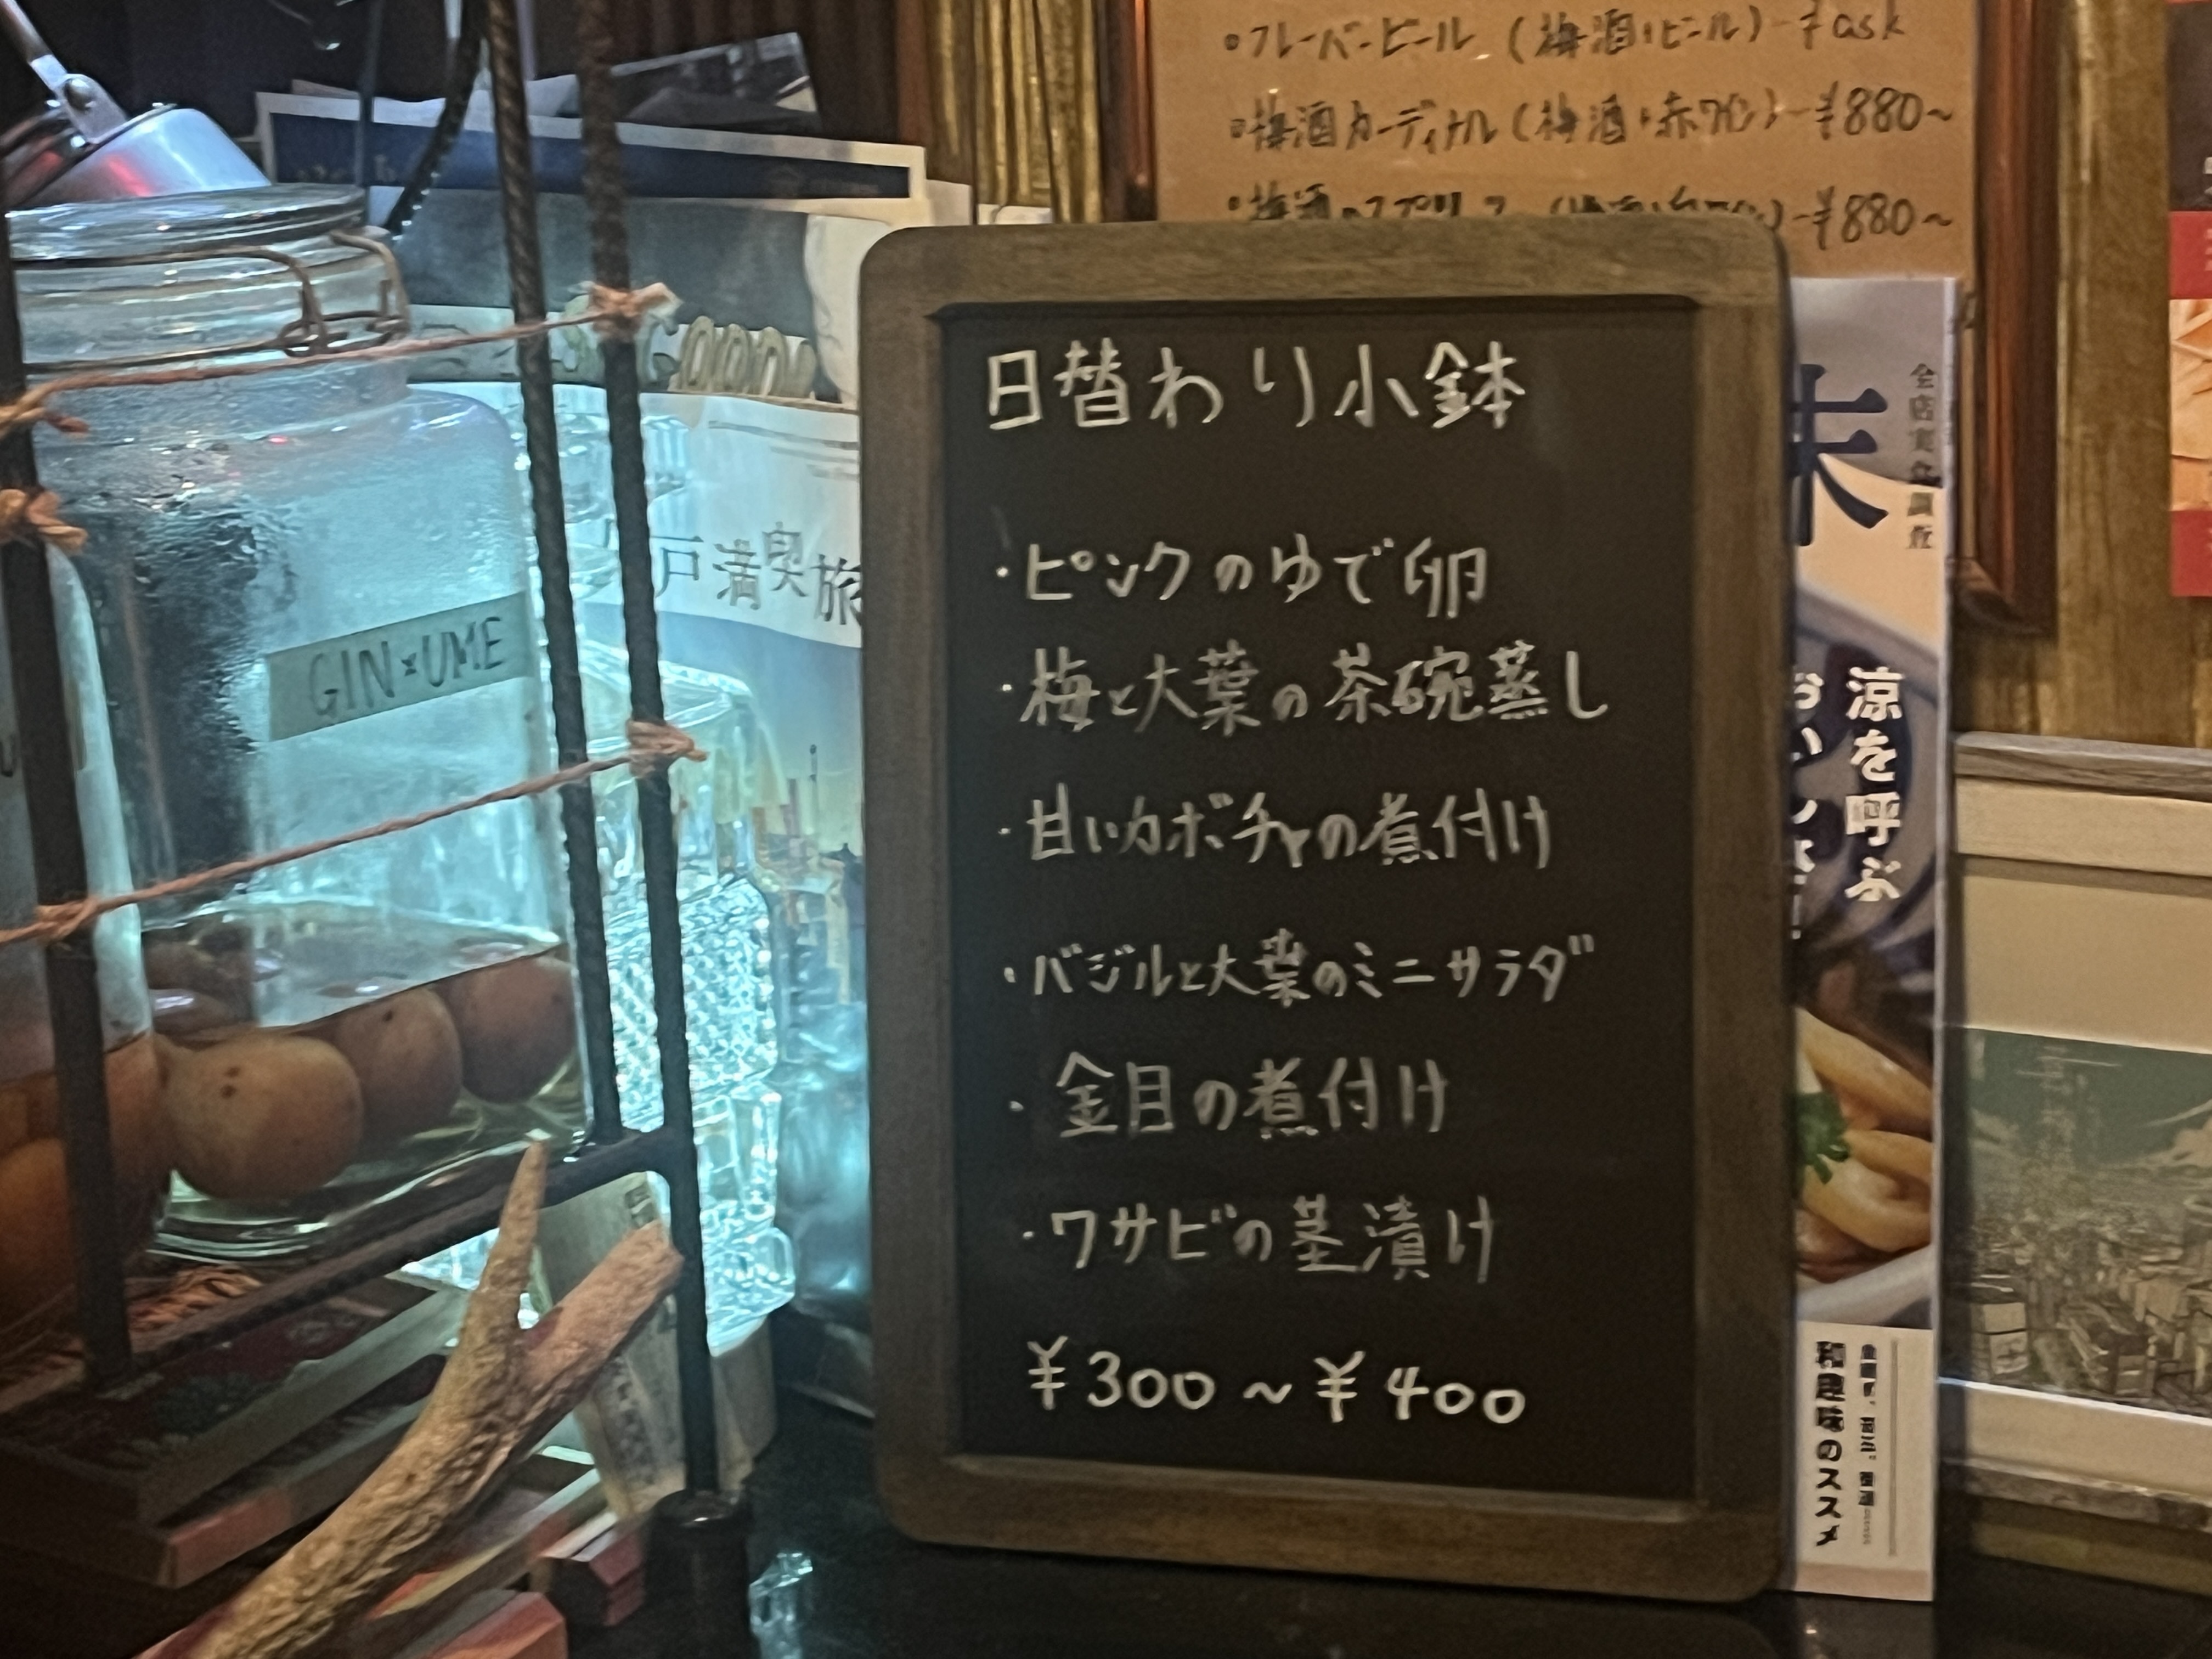 ・フレーバービール(梅酒+ビール)-¥ask
・梅酒カーディナル(梅酒+赤ワイン)-¥880~
-¥880~
日替わり小鉢
・ピンクのゆで卵
・梅と大葉の茶碗蒸し
・甘いカボチャの煮付け
・バジルと大葉のミニサラダ
・金目の煮付け
・ワサビの茎漬け
¥300~¥400
GIN×UME
戸満喫旅
全店実食調査
涼を呼ぶ
和趣味のススメ